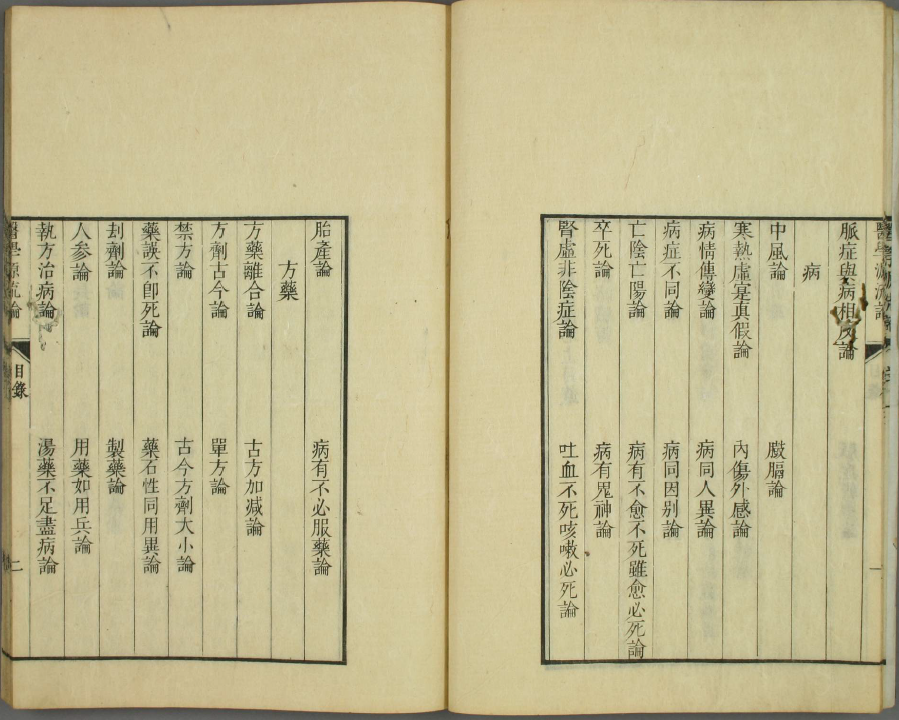 脈症與病相反論
病
中風論 臌膈論
寒熱虛寔真假論 內傷外感論
病情傳變論 病同人異論
病症不同論 病同因别論
亡陰亡陽論 病有不愈不死雖愈必死論
卒死論 病有鬼神論
腎虛非陰症論 吐血不死咳嗽必死論
胎產論 病有不必服藥論
方藥
方藥離合論 古方加减論
方劑古今論 單方論
禁方論 古今方劑大小論
藥誤不卽死論 藥石性同用異論
劫劑論 製藥論
人參論 用藥如用兵論
執方治病論 湯藥不足盡病論
醫學源流論 目錄 二